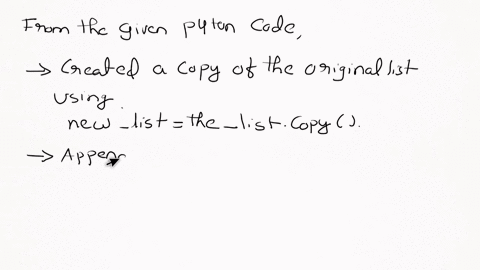 From the given pyton code,
→ Created a copy of the original list
using.
new_list = the_list.copy().
→ Appen